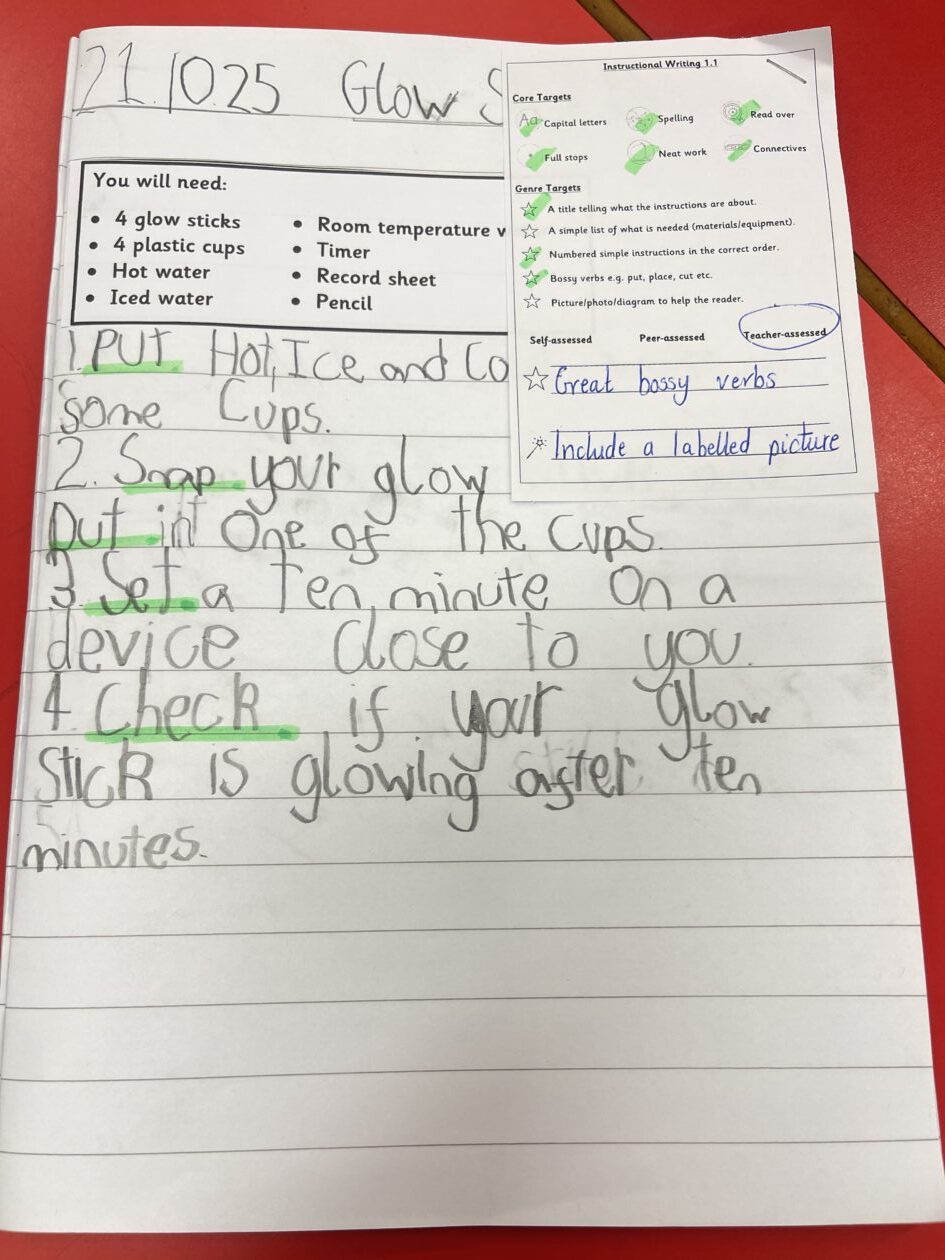 21.10.25 Glow S
You will need:
• 4 glow sticks
• 4 plastic cups
• Hot water
• Iced water
• Room temperature w
• Timer
• Record sheet
• Pencil
1. PUT Hot, Ice and Co
Some Cups.
2. Snap your glow
put in one of the cups.
3. Set a Ten minute On a
device close to you.
4. Check if your glow
Stick is glowing after ten
minutes.
Instructional Writing 1.1
Core Targets
Aa Capital letters
Spelling
Read over
Full stops
Neat work
Connectives
Genre Targets
A title telling what the instructions are about.
A simple list of what is needed (materials/equipment).
Numbered simple instructions in the correct order.
Bossy verbs e.g. put, place, cut etc.
Picture/photo/diagram to help the reader.
Self-assessed Peer-assessed Teacher-assessed
Great bossy verbs
Include a labelled picture